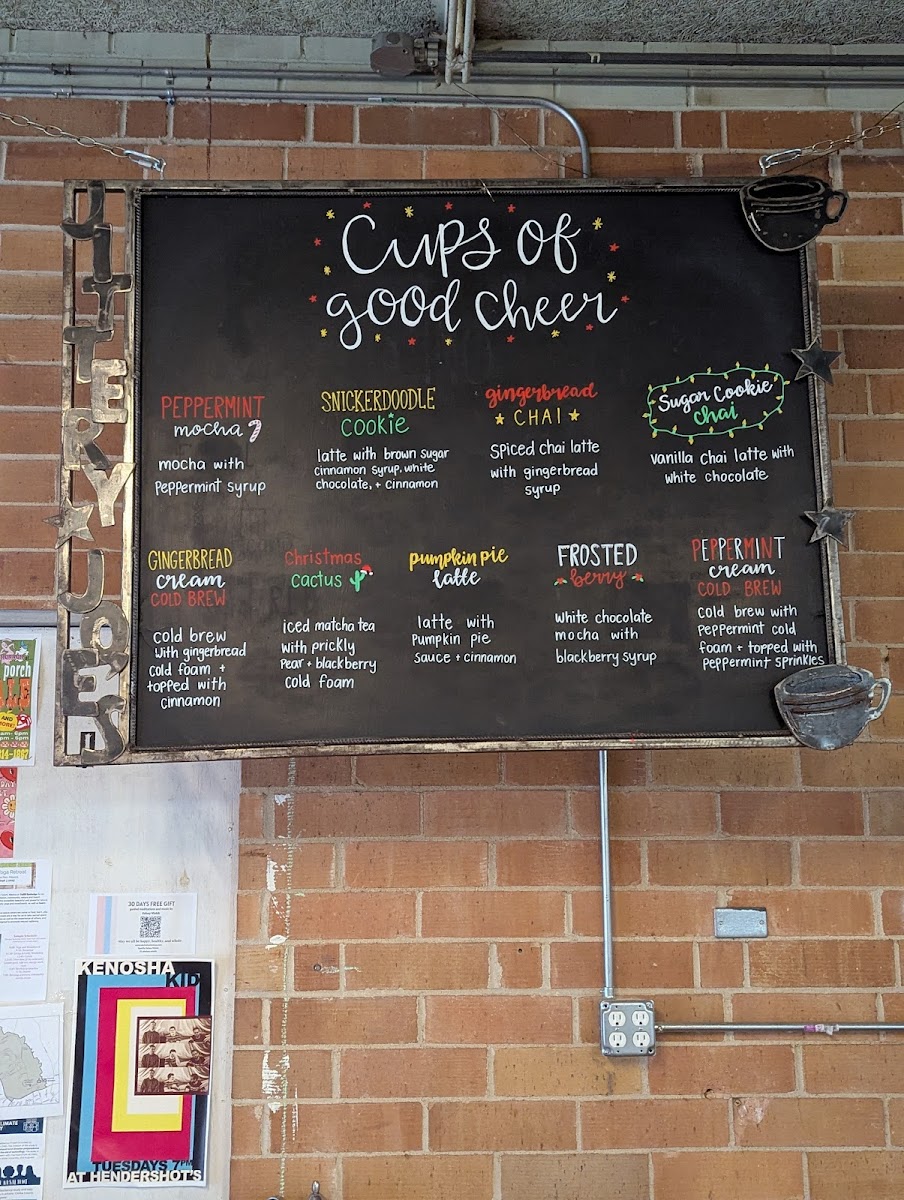 JITTERY JOES
Cups of
good cheer
PEPPERMINT
mocha
mocha with
peppermint syrup
SNICKERDOODLE
COOKIE
latte with brown sugar
cinnamon syrup, white
chocolate, + cinnamon
gingerbread
CHAI
spiced chai latte
with gingerbread
syrup
Sugar Cookie
chai
vanilla chai latte with
white chocolate
GINGERBREAD
cream
COLD BREW
cold brew
with gingerbread
cold foam +
topped with
cinnamon
Christmas
cactus
iced matcha tea
with prickly
pear + blackberry
cold foam
pumpkin pie
latte
latte with
pumpkin pie
sauce + cinnamon
FROSTED
berry
white chocolate
mocha with
blackberry syrup
PEPPERMINT
cream
COLD BREW
cold brew with
peppermint cold
foam + topped with
peppermint sprinkles
porch
AND
MORE!
30 DAYS FREE GIFT
KENOSHA
KID
TUESDAYS 7PM
AT HENDERSHOT'S